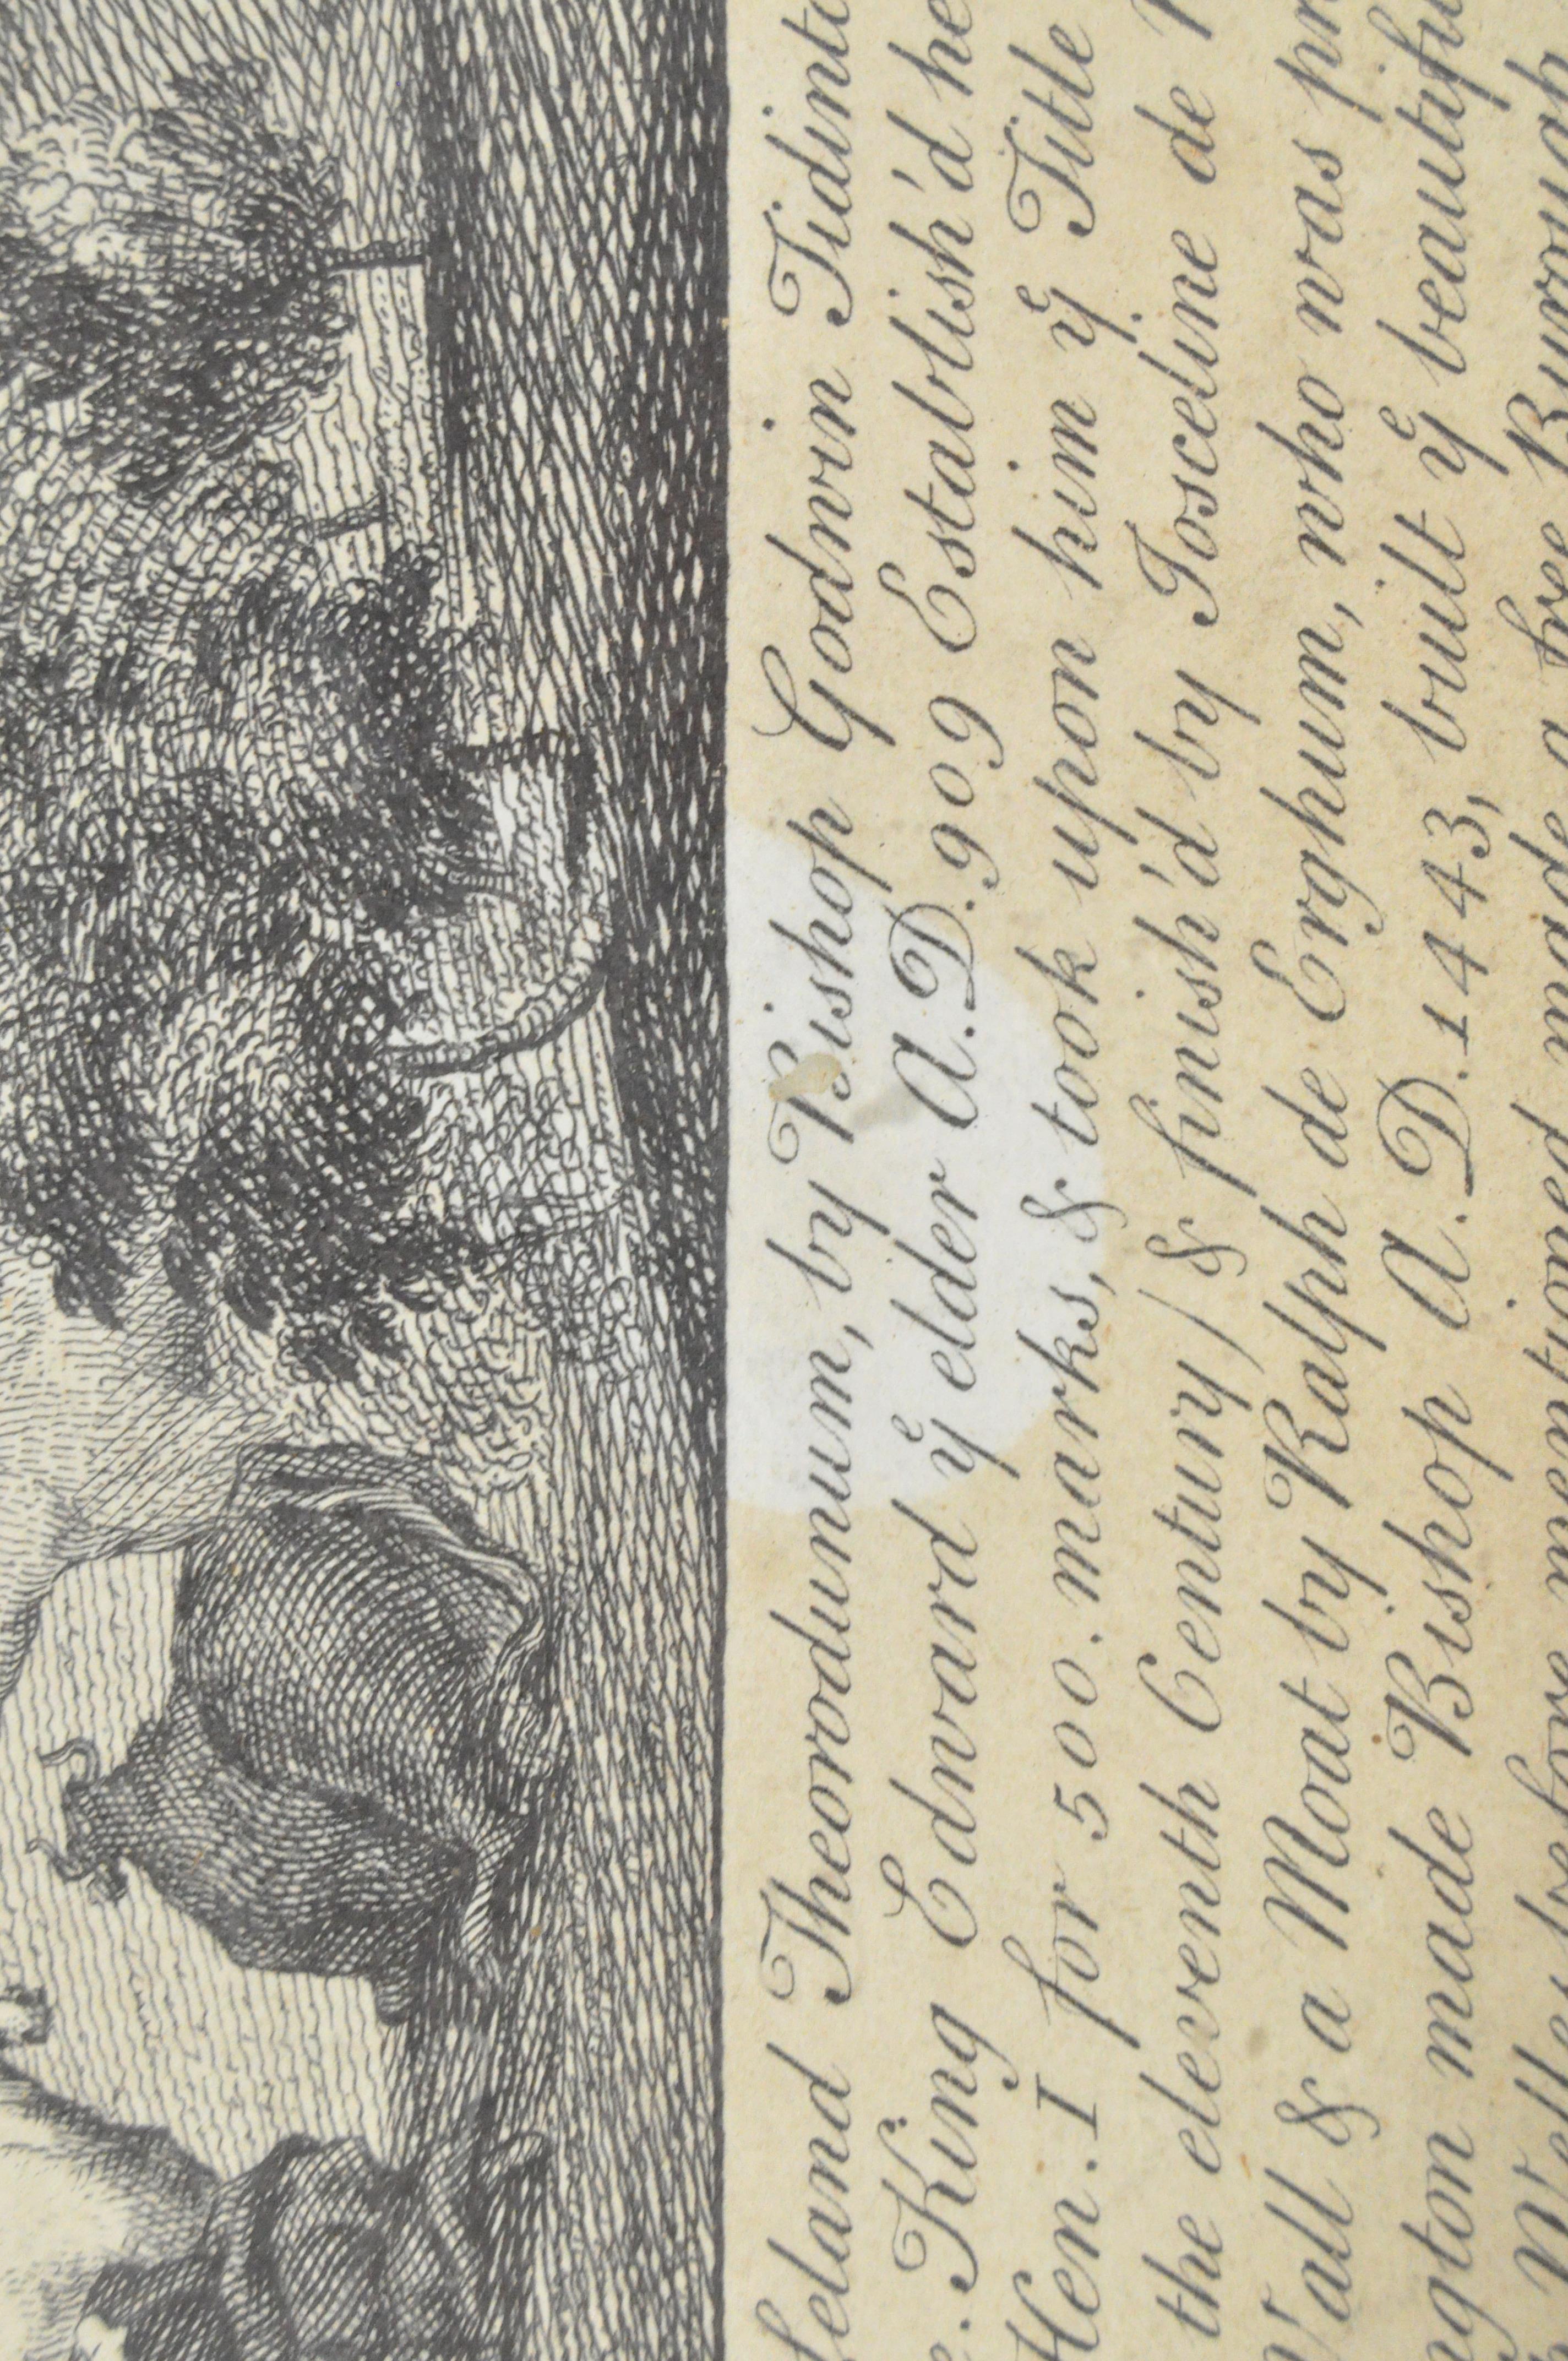 Leland Theorodunum, by Bishop Godwin Tidint
King Edward yͤ elder A.D. 909 Establish'd he
Hen. I for 500. marks, & took upon him yͤ Title
the eleventh Century) & finish'd by Josceline de
Wall & a Moat by Ralph de Erghum, who was pr
ngton made Bishop A.D. 1443, built yͤ beautifu
Welles before mentioned and made a free Burough